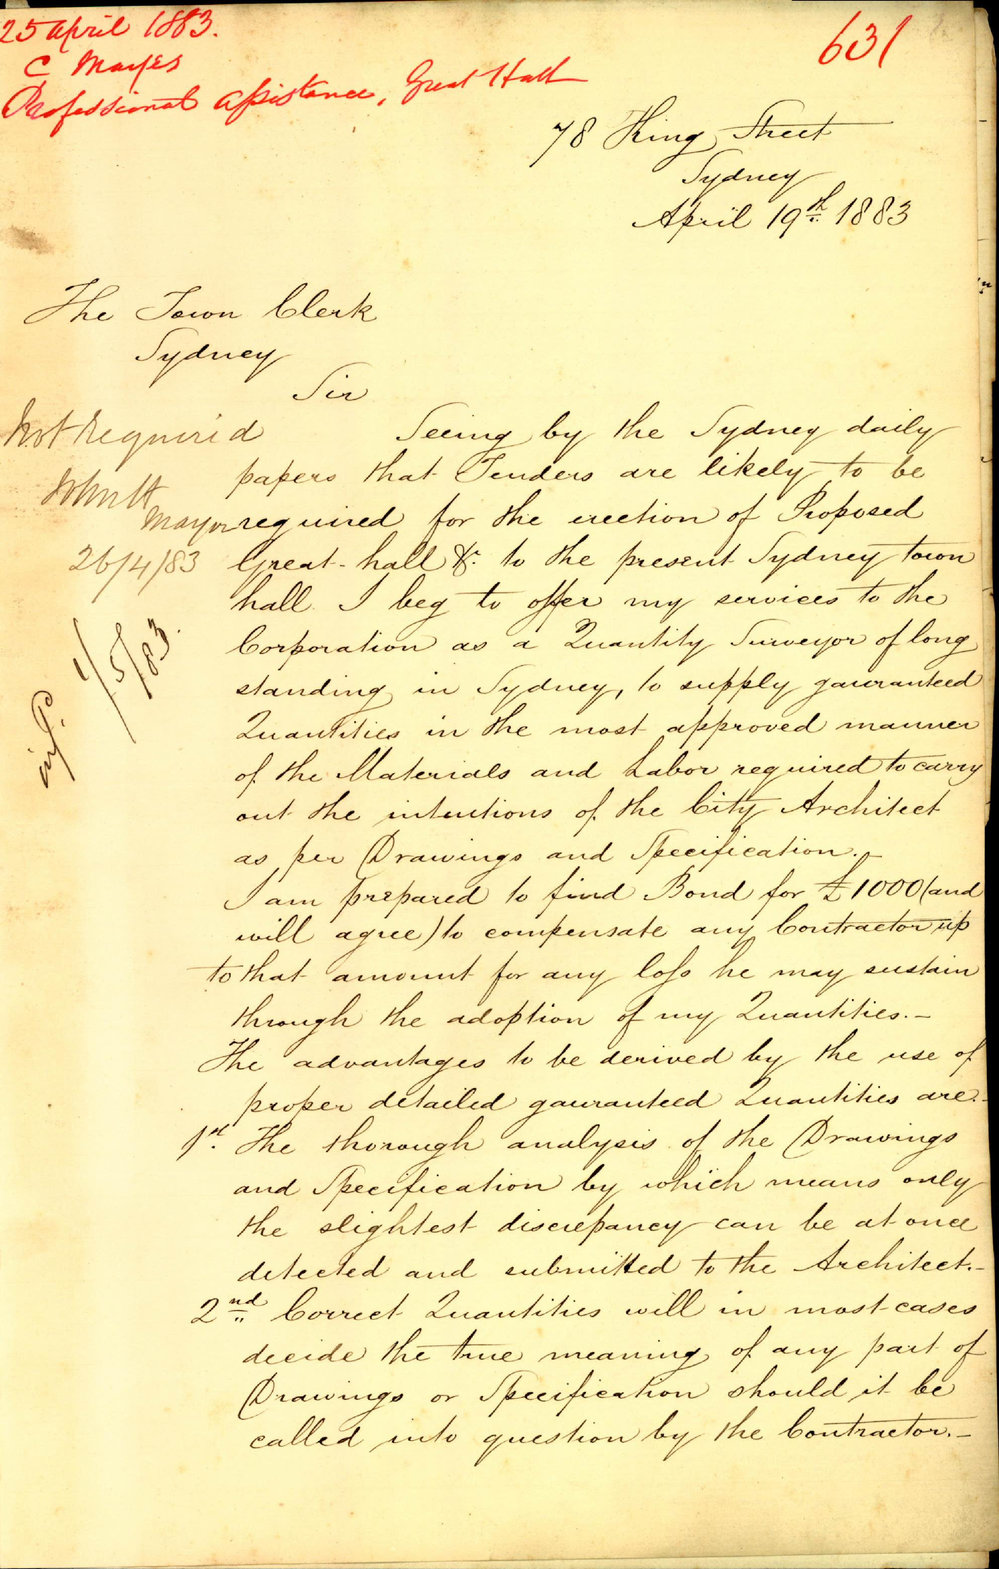 25 April 1883.
C Mayes
Professional Assistance, Great Hall
631
78 King Street
Sydney
April 19th 1883
The Town Clerk
Sydney
Sir
Seeing by the Sydney daily
papers that Tenders are likely to be
required for the erection of Proposed
Great-hall &c. to the present Sydney town
hall I beg to offer my services to the
Corporation as a Quantity Surveyor of long
standing in Sydney, to supply gauranteed
Quantities in the most approved manner
of the Materials and Labor required to carry
out the intentions of the City Architect
as per Drawings and Specification.-
I am prepared to find Bond for £1000 (and
will agree) to compensate any Contractor up
to that amount for any loss he may sustain
through the adoption of my Quantities.-
The advantages to be derived by the use of
proper detailed gauranteed Quantities are.-
1st. The thorough analysis of the Drawings
and Specification by which means only
the slightest discrepancy can be at once
detected and submitted to the Architect.-
2nd Correct Quantities will in most cases
decide the true meaning of any part of
Drawings or Specification should it be
called into question by the Contractor.-
Not required
John H
Mayor
26/4/83
1/5/83.